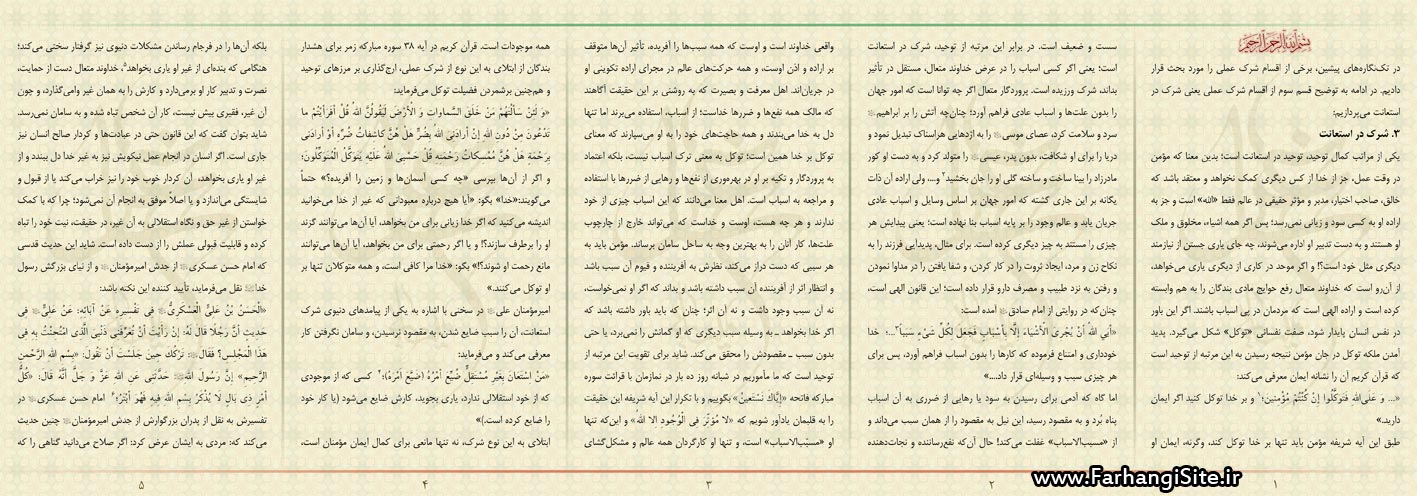 بسم الله الرحمن الرحیم
در تک‌نگاره‌های پیشین، برخی از اقسام شرک عملی را مورد بحث قرار
دادیم. در ادامه به توضیح قسم سوم از اقسام شرک عملی یعنی شرک در
استعانت می‌پردازیم:
۳. شرک در استعانت
یکی از مراتب کمال توحید، توحید در استعانت است؛ بدین معنا که مؤمن
در وقت عمل، جز از خدا از کس دیگری کمک نخواهد و معتقد باشد که
خالق، صاحب اختیار، مدبر و مؤثر حقیقی در عالم فقط «الله» است و جز به
اراده او به کسی سود و زیانی نمی‌رسد؛ پس اگر همه اشیاء، مخلوق و ملک
او هستند و به دست تدبیر او اداره می‌شوند، چه جای یاری جستن از نیازمند
دیگری مثل خود است؟! و اگر موحد در کاری از دیگری یاری می‌خواهد،
از آن‌رو است که خداوند متعال رفع حوایج مادی بندگان را به هم وابسته
کرده است و اراده الهی است که مردمان در پی اسباب باشند. اگر این باور
در نفس انسان پایدار شود، صفت نفسانی «توکل» شکل می‌گیرد. پدید
آمدن ملکه توکل در جان مؤمن نتیجه رسیدن به این مرتبه از توحید است
که قرآن کریم آن را نشانه ایمان معرفی می‌کند:
«... وَ عَلَی‌الله فَتَوَکَّلُوا إِنْ کُنْتُمْ مُؤْمِنین؛ و بر خدا توکل کنید اگر ایمان
دارید.»
طبق این آیه شریفه مؤمن باید تنها بر خدا توکل کند، وگرنه، ایمان او
۱
سست و ضعیف است. در برابر این مرتبه از توحید، شرک در استعانت
است؛ یعنی اگر کسی اسباب را در عرض خداوند متعال، مستقل در تأثیر
بداند، شرک ورزیده است. پروردگار متعال اگر چه توانا است که امور جهان
را بدون علت‌ها و اسباب عادی فراهم آورد؛ چنان‌چه آتش را بر ابراهیم
سرد و سلامت کرد، عصای موسی را به اژدهایی هراسناک تبدیل نمود و
دریا را برای او شکافت، بدون پدر، عیسی را متولد کرد و به دست او کور
مادرزاد را بینا ساخت و ساخته گلی او را جان بخشید و...، ولی اراده آن ذات
یگانه بر این جاری گشته که امور جهان بر اساس وسایل و اسباب عادی
جریان یابد و عالم وجود را بر پایه اسباب بنا نهاده است؛ یعنی پیدایش هر
چیزی را مستند به چیز دیگری کرده است. برای مثال، پدیدایی فرزند را به
نکاح زن و مرد، ایجاد ثروت را در کار کردن، و شفا یافتن را در مداوا نمودن
و رفتن به نزد طبیب و مصرف دارو قرار داده است؛ این قانون الهی است،
چنان‌که در روایتی از امام صادق آمده است:
«أَبَی اللهُ أَنْ یُجْرِیَ الْأَشْیَاءَ إِلَّا بِأَسْبَابٍ فَجَعَلَ لِکُلِّ شَیْءٍ سَبَباً...؛ خدا
خودداری و امتناع فرموده که کارها را بدون اسباب فراهم آورد، پس برای
هر چیزی سبب و وسیله‌ای قرار داد....»
اما گاه که آدمی برای رسیدن به سود یا رهایی از ضرری به آن اسباب
پناه بُرد و به مقصود رسید، این نیل به مقصود را از همان سبب می‌داند و
از «مسبب‌الاسباب» غفلت می‌کند! حال آن‌که نفع‌رساننده و نجات‌دهنده
۲
واقعی خداوند است و اوست که همه سبب‌ها را آفریده، تأثیر آن‌ها متوقف
بر اراده و اذن اوست، و همه حرکت‌های عالم در مجرای اراده تکوینی او
در جریان‌اند. اهل معرفت و بصیرت که به روشنی بر این حقیقت آگاهند
که مالک همه نفع‌ها و ضررها خداست؛ از اسباب، استفاده می‌برند اما تنها
دل به خدا می‌بندند و همه حاجت‌های خود را به او می‌سپارند که معنای
توکل بر خدا همین است؛ توکل به معنی ترک اسباب نیست، بلکه اعتماد
به پروردگار و تکیه بر او در بهره‌وری از نفع‌ها و رهایی از ضررها با استفاده
و مراجعه به اسباب است. اهل معنا می‌دانند که این اسباب چیزی از خود
ندارند و هر چه هست، اوست و خداست که می‌تواند خارج از چارچوب
علت‌ها، کار آنان را به بهترین وجه به ساحل سامان برساند. مؤمن باید به
هر سببی که دست دراز می‌کند، نظرش به آفریننده و قیوم آن سبب باشد
و انتظار اثر از آفریننده آن سبب داشته باشد و بداند که اگر او نمی‌خواست،
نه آن سبب وجود داشت و نه آن اثر؛ چنان که باید باور داشته باشد که
اگر خدا بخواهد ـ به وسیله سبب دیگری که او گمانش را نمی‌برد، یا حتی
بدون سبب ـ مقصودش را محقق می‌کند. شاید برای تقویت این مرتبه از
توحید است که ما مأموریم در شبانه روز ده بار در نمازمان با قرائت سوره
مبارکه فاتحه «إِیَّاکَ نَسْتَعینُ» بگوییم و با تکرار این آیه شریفه این حقیقت
را به قلبمان یادآور شویم که «لا مُؤثرَ فی الْوُجُودِ الا الله» و این‌که تنها
او «مسبّب‌الاسباب» است، و تنها او کارگردان همه عالم و مشکل‌گشای
۳
همه موجودات است. قرآن کریم در آیه ۳۸ سوره مبارکه زمر برای هشدار
بندگان از ابتلای به این نوع از شرک عملی، ارج‌گذاری بر مرزهای توحید
و هم‌چنین برشمردن فضیلت توکل می‌فرماید:
«وَ لَئِنْ سَأَلْتَهُمْ مَنْ خَلَقَ السَّماواتِ وَ الْأَرْضَ لَیَقُولُنَّ اللهُ قُلْ أَفَرَأَیْتُمْ ما
تَدْعُونَ مِنْ دُونِ اللهِ إِنْ أَرادَنِیَ اللهُ بِضُرٍّ هَلْ هُنَّ کاشِفاتُ ضُرِّهِ أَوْ أَرادَنی
بِرَحْمَةٍ هَلْ هُنَّ مُمْسِکاتُ رَحْمَتِهِ قُلْ حَسْبِیَ اللهُ عَلَیْهِ یَتَوَکَّلُ الْمُتَوَکِّلُونَ؛
و اگر از آن‌ها بپرسی «چه کسی آسمان‌ها و زمین را آفریده؟» حتماً
می‌گویند:«خدا» بگو: «آیا هیچ درباره معبودانی که غیر از خدا می‌خوانید
اندیشه می‌کنید که اگر خدا زیانی برای من بخواهد، آیا آن‌ها می‌توانند گزند
او را برطرف سازند؟! و یا اگر رحمتی برای من بخواهد، آیا آن‌ها می‌توانند
مانع رحمت او شوند؟!» بگو: «خدا مرا کافی است، و همه متوکلان تنها بر
او توکل می‌کنند.»
امیرمؤمنان علی در سخنی با اشاره به یکی از پیامدهای دنیوی شرک
استعانت، آن را سبب ضایع شدن، به مقصود نرسیدن، و سامان نگرفتن کار
معرفی می‌کند و می‌فرماید:
«مَنْ اسْتَعَانَ بِغَیْرِ مُسْتَقِلٍّ ضُیِّعَ أَمْرُهُ (ضَیَّعَ أَمْرَهُ)؛ کسی که از موجودی
که از خود استقلالی ندارد، یاری بجوید، کارش ضایع می‌شود (یا کار خود
را ضایع کرده است.)»
ابتلای به این نوع شرک، نه تنها مانعی برای کمال ایمان مؤمنان است،
۴
بلکه آن‌ها را در فرجام رساندن مشکلات دنیوی نیز گرفتار سختی می‌کند؛
هنگامی که بنده‌ای از غیر او یاری بخواهد، خداوند متعال دست از حمایت،
نصرت و تدبیر کار او برمی‌دارد و کارش را به همان غیر وامی‌گذارد، و چون
آن غیر، فقیری بیش نیست، کار آن شخص تباه شده و به سامان نمی‌رسد.
شاید بتوان گفت که این قانون حتی در عبادت‌ها و کردار صالح انسان نیز
جاری است. اگر انسان در انجام عمل نیکویش نیز به غیر خدا دل ببندد و از
غیر او یاری بخواهد، آن کردار خوب خود را نیز خراب می‌کند یا از قبول و
شایستگی می‌اندازد و یا اصلاً موفق به انجام آن نمی‌شود؛ چرا که با کمک
خواستن از غیر حق و نگاه استقلالی به آن غیر، در حقیقت، نیت خود را تباه
کرده و قابلیت قبولی عملش را از دست داده است. شاید این حدیث قدسی
که امام حسن عسکری از جدش امیرمؤمنان و از نیای بزرگش رسول
خدا نقل می‌فرماید، تأیید کننده این نکته باشد:
«الْحَسَنُ بْنُ عَلِیٍّ الْعَسْکَرِیُّ فِی تَفْسِیرِهِ عَنْ آبَائِهِ عَنْ عَلِیٍّ فِی
حَدِیثٍ أَنَّ رَجُلًا قَالَ لَهُ: إِنْ رَأَیْتَ أَنْ تُعَرِّفَنِی ذَنْبِیَ الَّذِی امْتُحِنْتُ بِهِ فِی
هَذَا الْمَجْلِسِ؟ فَقَالَ: تَرْکُکَ حِینَ جَلَسْتَ أَنْ تَقُولَ: «بِسْمِ اللهِ الرَّحْمنِ
الرَّحِیمِ» إِنَّ رَسُولَ اللهِ حَدَّثَنِی عَنِ اللهِ عَزَّ وَ جَلَّ أَنَّهُ قَالَ: «کُلُّ
أَمْرٍ ذِی بَالٍ لَا یُذْکَرُ بِسْمِ اللهِ فِیهِ فَهُوَ أَبْتَرُ؛ امام حسن عسکری در
تفسیرش به نقل از پدران بزرگوارش از جدش امیرمؤمنان چنین حدیث
می‌کند که: مردی به ایشان عرض کرد: اگر صلاح می‌دانید گناهی را که
۵
www.FarhangiSite.ir